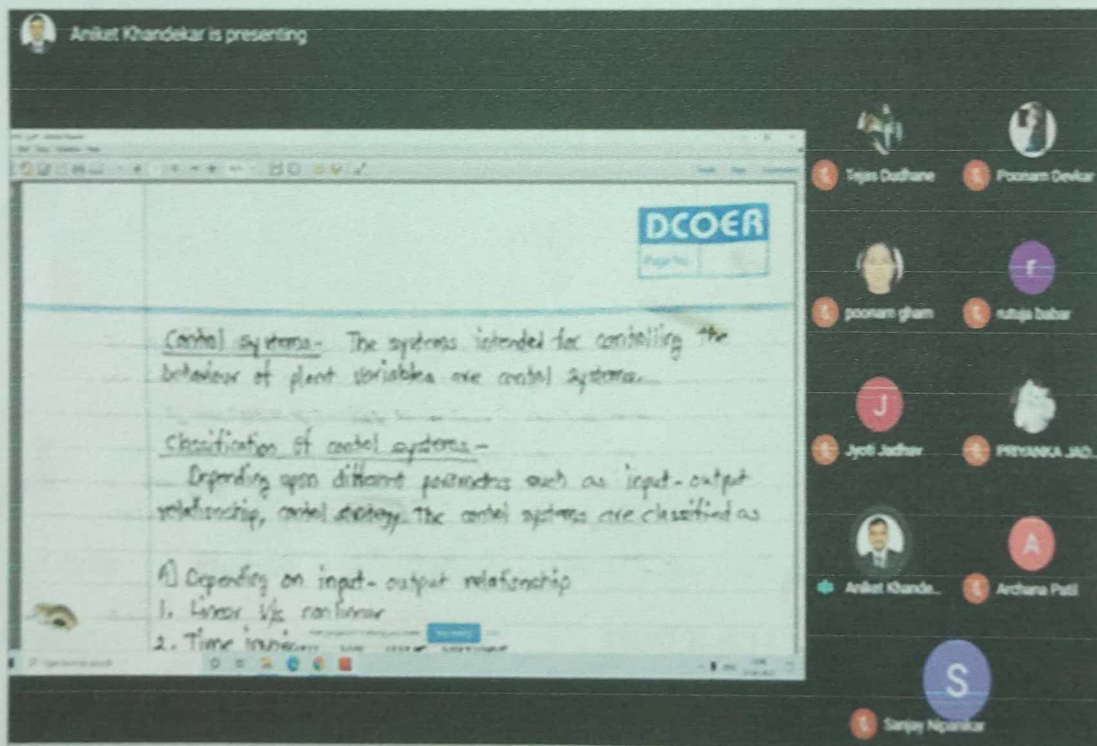 Aniket Khandekar is presenting
DCOER
Page No.
Control systems- The systems intended for controlling the
behaviour of plant variables are control systems.
Classification of control systems -
Depending upon different parameters such as input-output
relationship, control strategy. The control systems are classified as
A] Depending on input-output relationship
1. Linear v/s nonlinear
2. Time
Tejas Dudhane
Poonam Devkar
poonam gham
rutuja babar
J
Jyoti Jadhav
PRIYANKA JAD...
Aniket Khande...
A
Archana Patil
S
Sanjay Nipanikar